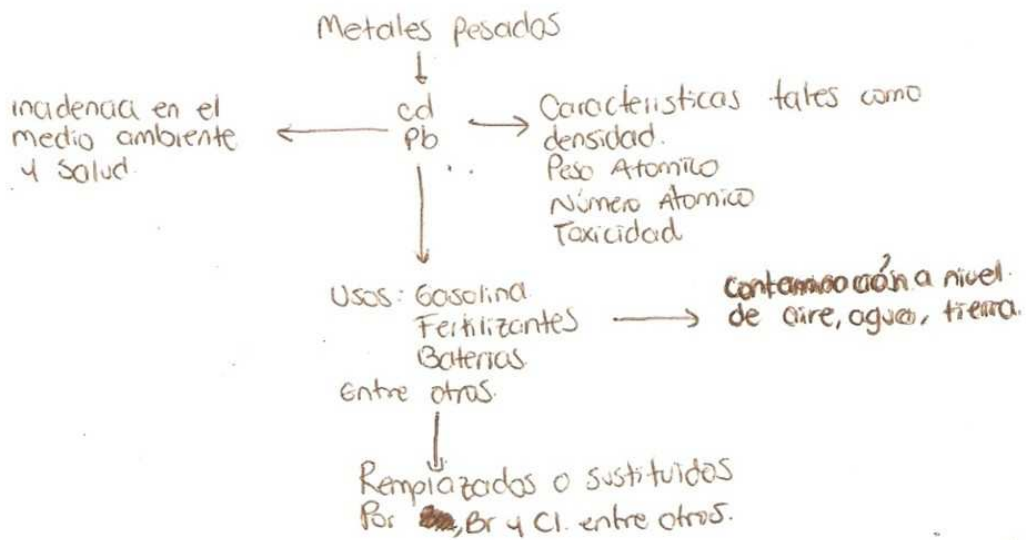 Metales pesados
cd
Pb
incidencia en el
medio ambiente
y salud.
Caracteristicas tales como
densidad.
Peso Atomico
Número Atomico
Toxicidad
Usos: Gasolina
Fertilizantes
Baterias
Entre otros.
contaminación a nivel
de aire, agua, tierra.
Remplazados o sustituidos
Por , Br y Cl. entre otros.